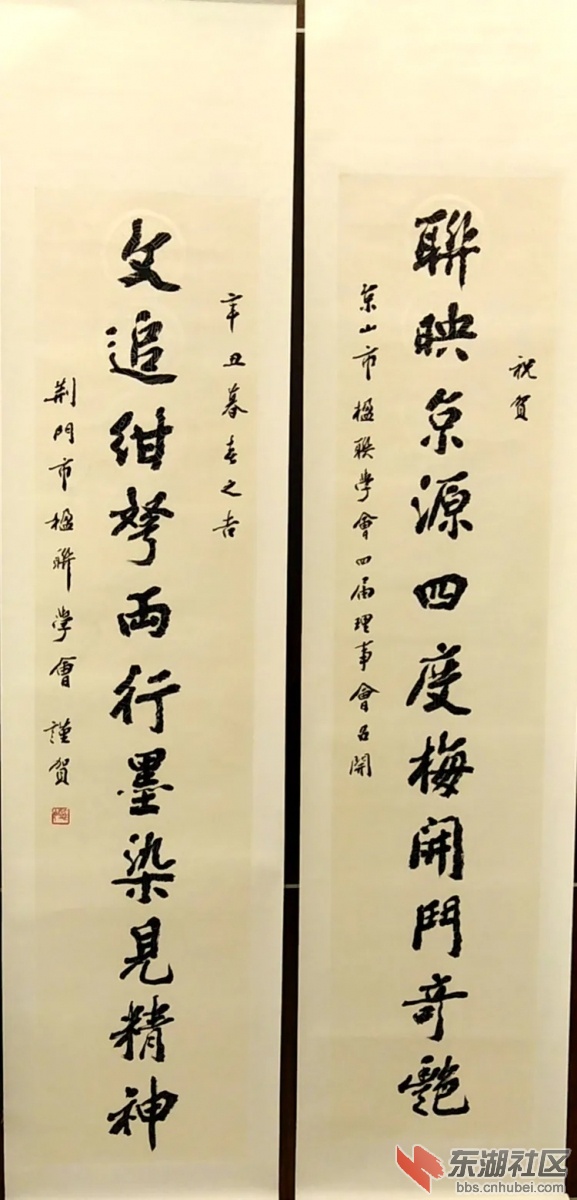 祝贺
聯映京源四度梅開鬥奇艷
京山市楹联学會四届理事會召開
辛丑暮春之吉
文追绀弩两行墨染見精神
荆門市楹聯学會 謹贺
东湖社区
bbs.cnhubei.com